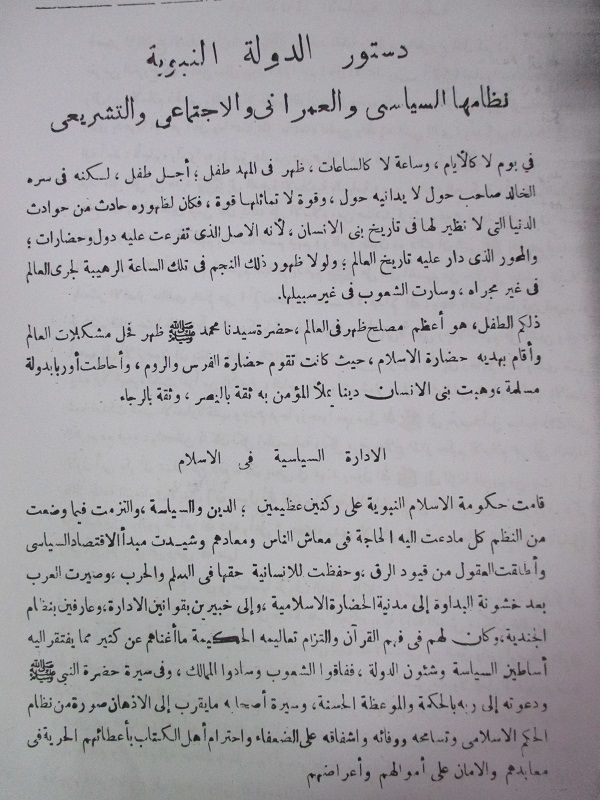 دستور الدولة النبوية
نظامها السياسى والعمرانى والاجتماعى والتشريعى
في يوم لا كالأيام ، وساعة لا كالساعات ، ظهر فى المهد طفل ؛ أجل طفل ، لكنه فى سره
الخالد صاحب حول لا يدانيه حول ، وقوة لا تماثلها قوة ، فكان لظهوره حادث من حوادث
الدنيا التى لا نظير لها فى تاريخ بنى الانسان ، لأنه الاصل الذى تفرعت عليه دول وحضارات ؛
والمحور الذى دار عليه تاريخ العالم ؛ ولولا ظهور ذلك النجم فى تلك الساعة الرهيبة لجرى العالم
فى غير مجراه ، وسارت الشعوب فى غير سبيلها.
ذلكم الطفل، هو أعظم مصلح ظهر فى العالم ، حضرة سيدنا محمد ﷺ ظهر فحل مشكلات العالم
وأقام بهديه حضارة الاسلام ، حيث كانت تقوم حضارة الفرس والروم ، وأحاطت أوربا بدولة
مسلمة ، وهبت بنى الانسان دينا يملأ المؤمن به ثقة بالنصر ، وثقة بالرجاء
الادارة السياسية فى الاسلام
قامت حكومة الاسلام النبوية على ركنين عظيمين ؛ الدين والسياسة ، والتزمت فيما وضعت
من النظم كل مادعت اليه الحاجة فى معاش الناس ومعادهم وشيدت مبدأ الاقتصاد السياسى
وأطلقت العقول من قيود الرق ، وحفظت للانسانية حقها فى السلم والحرب ، وصيرت العرب
بعد خشونة البداوة إلى مدنية الحضارة الاسلامية ، وإلى خبيرين بقوانين الادارة ، وعارفين بنظام
الجندية ، وكان لهم فى فهم القرآن والتزام تعاليمه الحكيمة ماأغناهم عن كثير مما يفتقر اليه
أساطين السياسة وشئون الدولة ، ففاقوا الشعوب وسادوا الممالك ، وفى سيرة حضرة النبى ﷺ
ودعوته إلى ربه بالحكمة والموعظة الحسنة ، وسيرة أصحابه مايقرب إلى الاذهان صورة من نظام
الحكم الاسلامى وتسامحه ووفائه واشفاقه على الضعفاء واحترام أهل الكتاب بأعطائهم الحرية فى
معابدهم والامان على أموالهم وأعراضهم